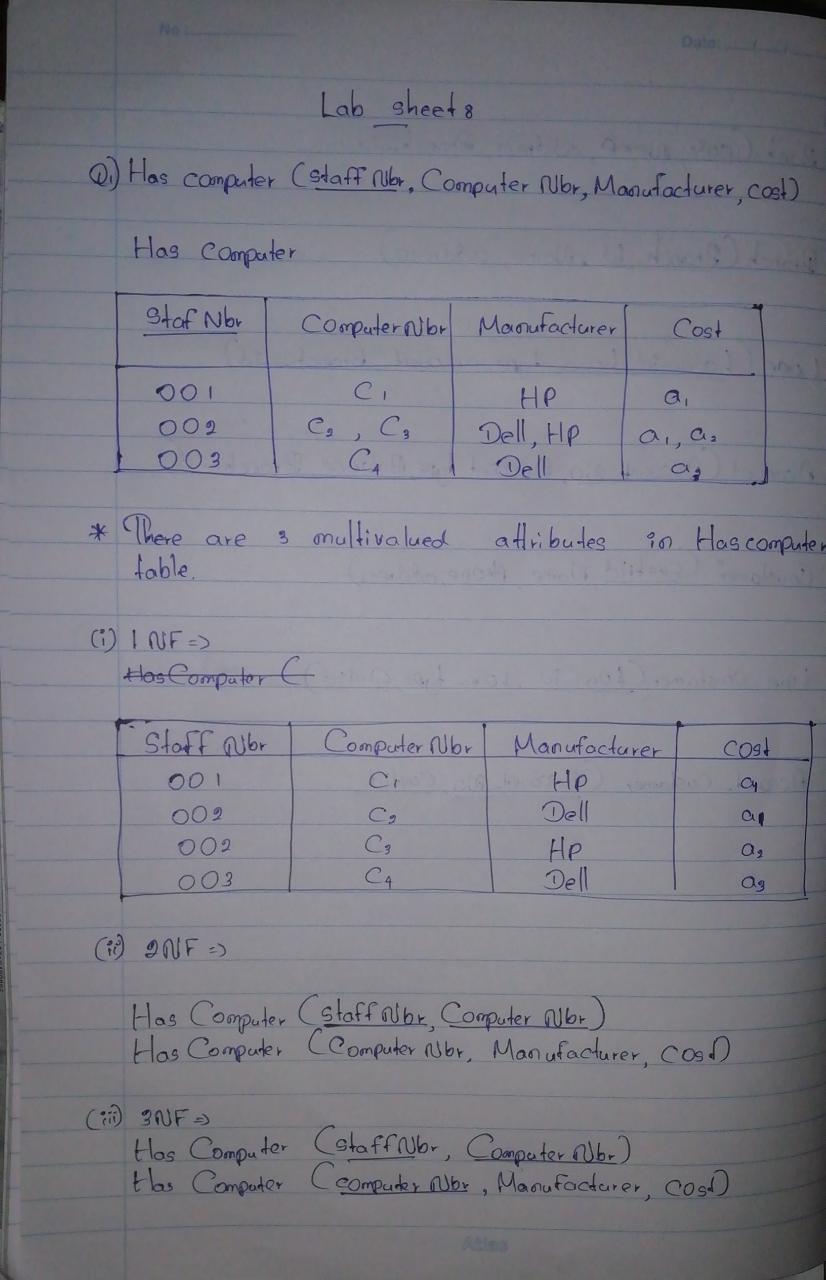 No :
Date:
Lab sheet 8
Q1) Has computer (staff Nbr, Computer Nbr, Manufacturer, cost)
Has Computer
Staf Nbr Computer Nbr Manufacturer Cost
001 C1 HP a1
002 C2, C3 Dell, HP a1, a2
003 C4 Dell a3
* There are 3 multivalued attributes in Hascomputer
table.
(i) 1 NF =>
HasComputer (
Staff Nbr Computer Nbr Manufacturer cost
001 C1 HP a1
002 C2 Dell a1
002 C3 HP a2
003 C4 Dell a3
(ii) 2NF =>
Has Computer (staff Nbr, Computer Nbr)
Has Computer (Computer Nbr, Manufacturer, cost)
(iii) 3NF =>
Has Computer (staff Nbr, Computer Nbr)
Has Computer (computer Nbr, Manufacturer, cost)
Atlas